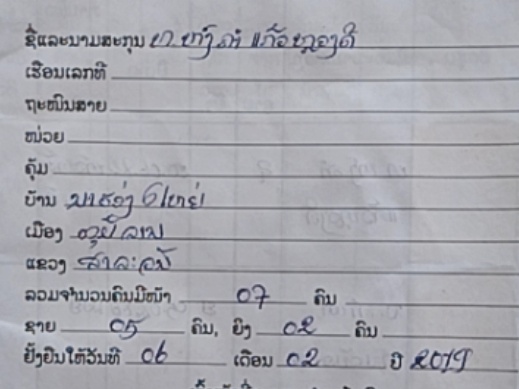 ຊື່ແລະນາມສະກຸນ ທ. ຫງ໊ ຄຳ ແກ້ວຫຼວງດີ
ເຮືອນເລກທີ
ຖະໜົນສາຍ
ໜ່ວຍ
ຄຸ້ມ
ບ້ານ ນາຊອ່ງ ໃຫຍ່
ເມືອງ ຕຸ້ມລານ
ແຂວງ ສາລະວັນ
ລວມຈຳນວນຄົນມີໜ້າ 07 ຄົນ
ຊາຍ 05 ຄົນ, ຍິງ 02 ຄົນ
ຢັ້ງຢືນໃຫ້ວັນທີ 06 ເດືອນ 02 ປີ 2019